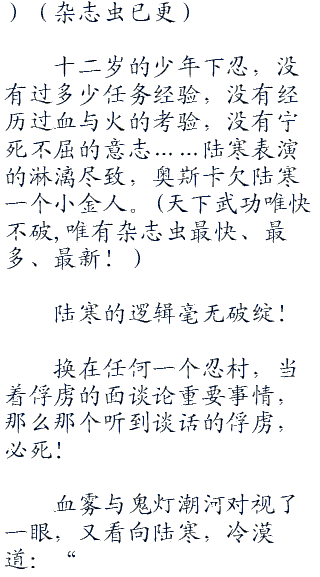 ）（杂志虫已更）
十二岁的少年下忍，没
有过多少任务经验，没有经
历过血与火的考验，没有宁
死不屈的意志……陆寒表演
的淋漓尽致，奥斯卡欠陆寒
一个小金人。(天下武功唯快
不破,唯有杂志虫最快、最
多、最新！)
陆寒的逻辑毫无破绽！
换在任何一个忍村，当
着俘虏的面谈论重要事情，
那么那个听到谈话的俘虏，
必死！
血雾与鬼灯潮河对视了
一眼，又看向陆寒，冷漠
道：“